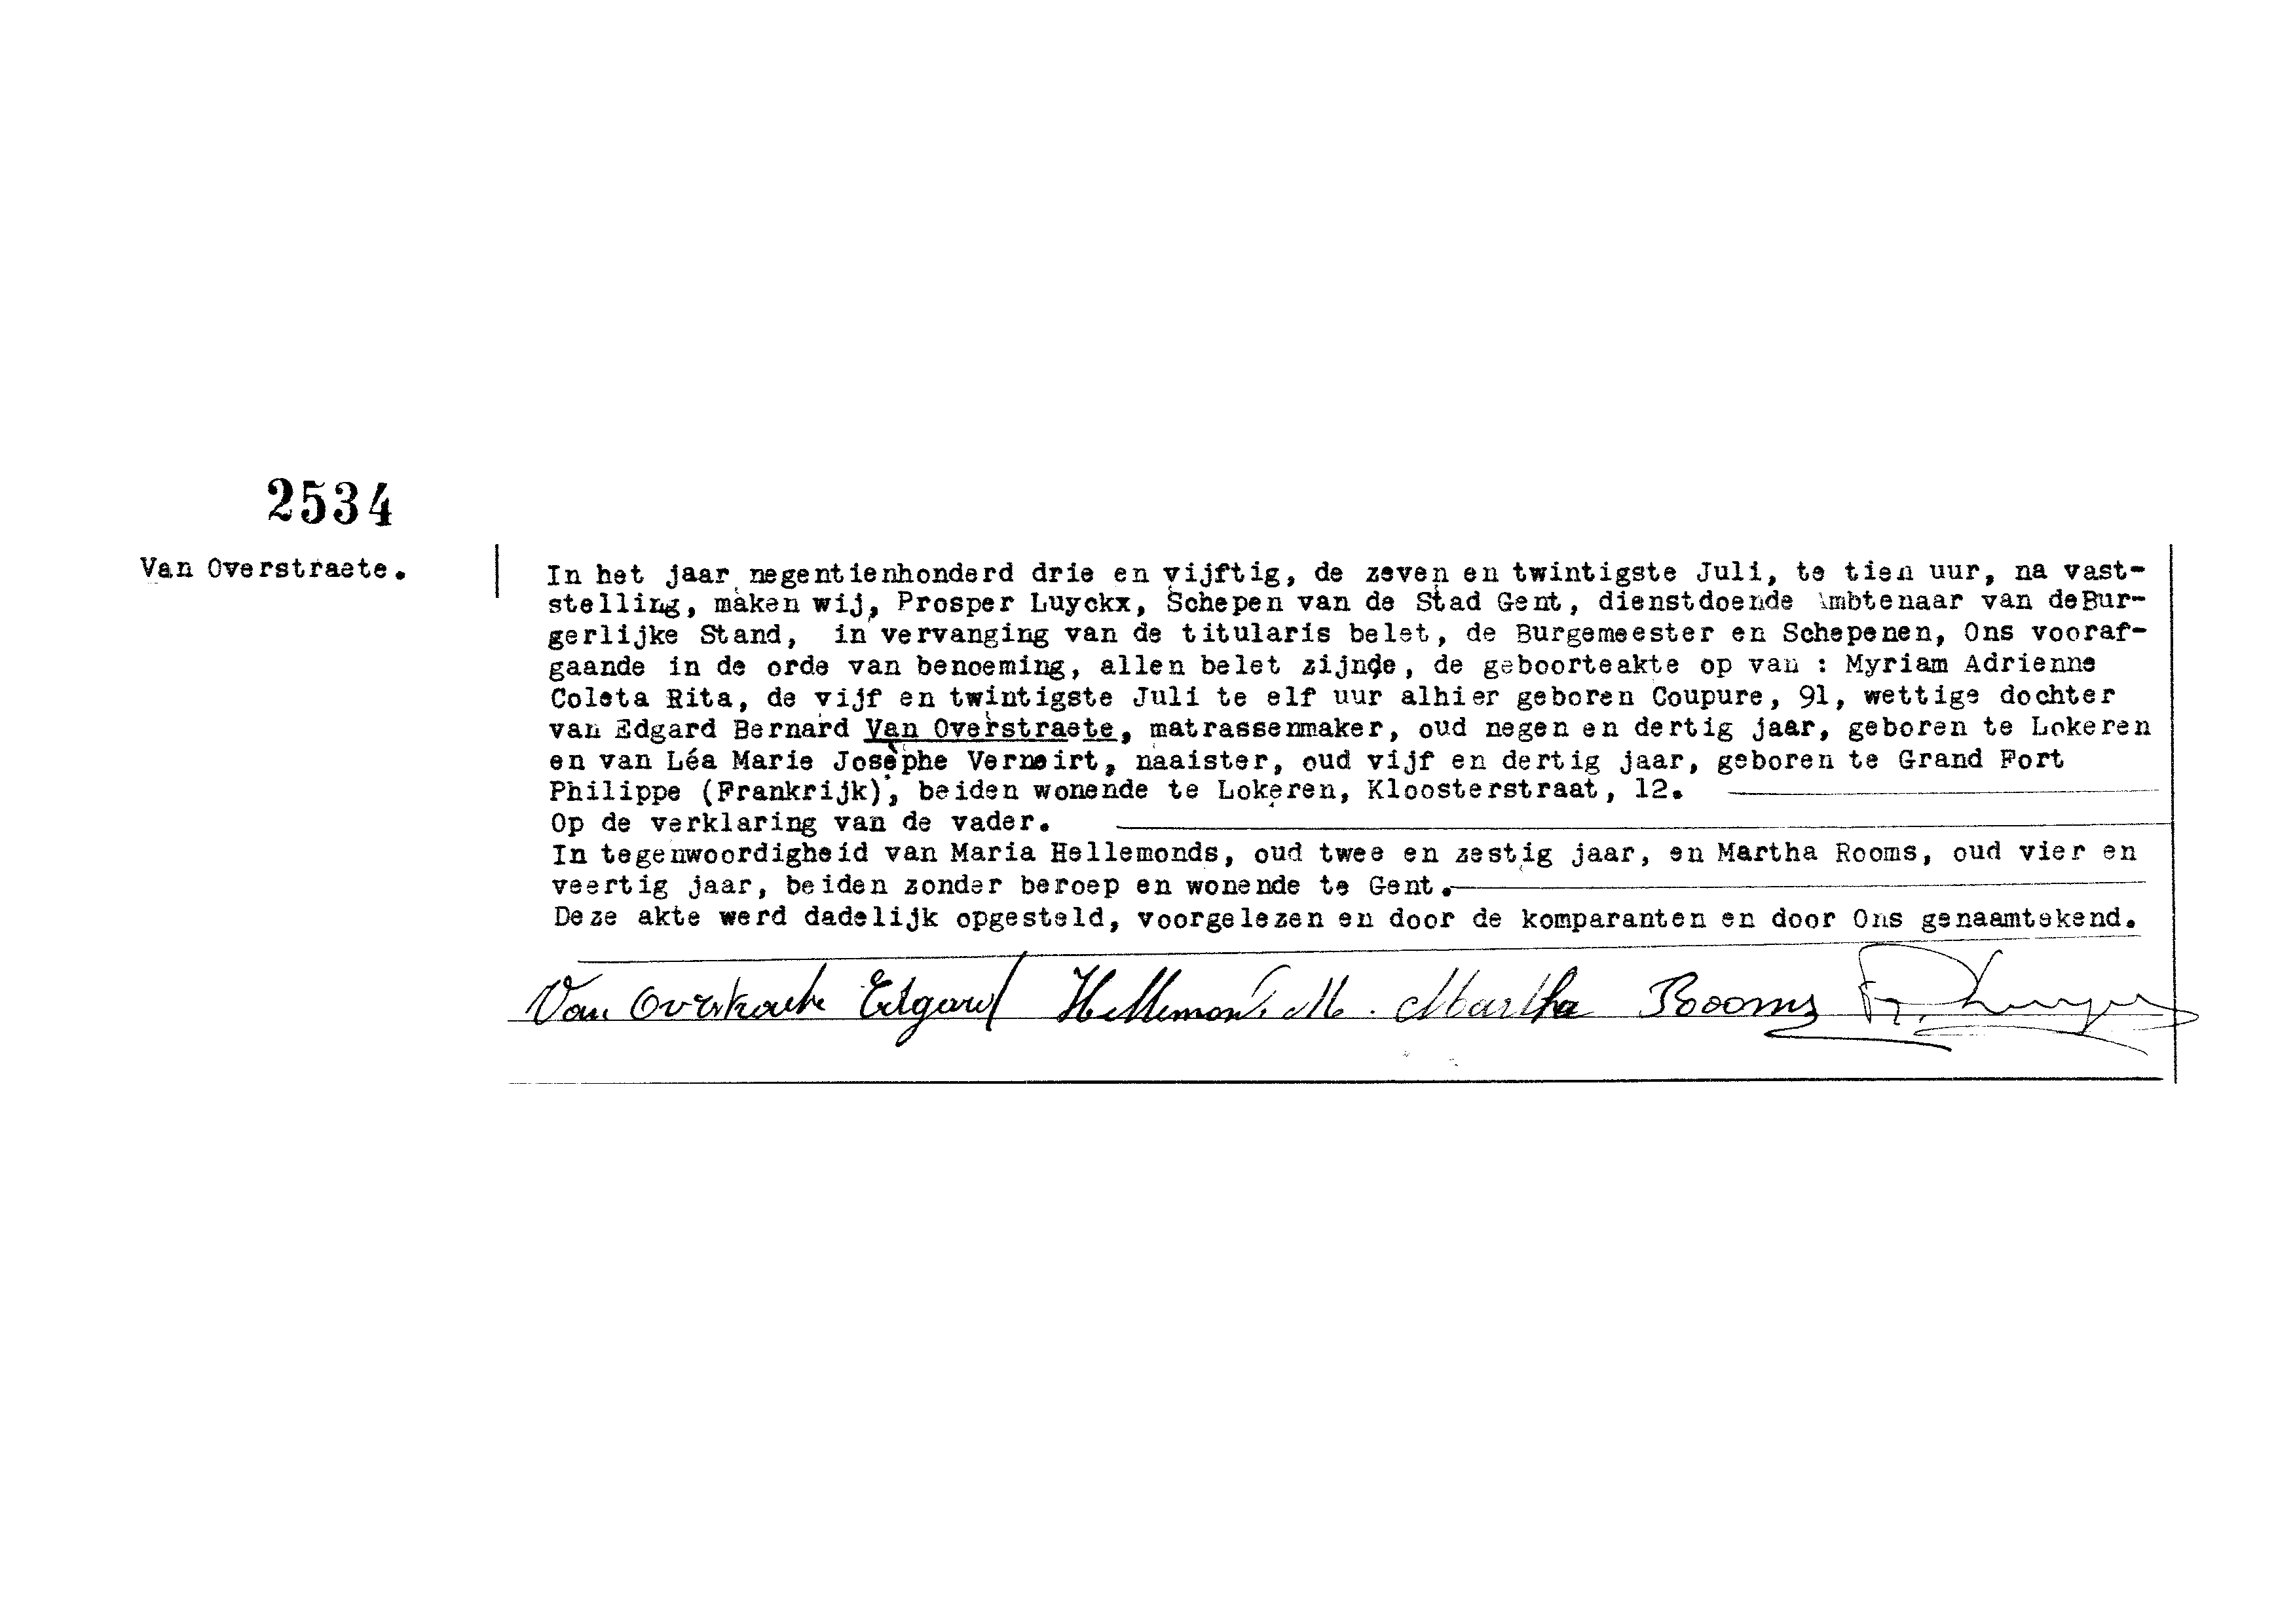 2534
Van Overstraete.
In het jaar negentienhonderd drie en vijftig, de zeven en twintigste Juli, te tien uur, na vast-
stelling, maken wij, Prosper Luyckx, Schepen van de Stad Gent, dienstdoende Ambtenaar van deBur-
gerlijke Stand, in vervanging van de titularis belet, de Burgemeester en Schepenen, Ons vooraf-
gaande in de orde van benoeming, allen belet zijnde, de geboorteakte op van : Myriam Adrienne
Coleta Rita, de vijf en twintigste Juli te elf uur alhier geboren Coupure, 91, wettige dochter
van Edgard Bernard Van Overstraete, matrassenmaker, oud negen en dertig jaar, geboren te Lokeren
en van Léa Marie Josèphe Verneirt, naaister, oud vijf en dertig jaar, geboren te Grand Fort
Philippe (Frankrijk), beiden wonende te Lokeren, Kloosterstraat, 12.
Op de verklaring van de vader.
In tegenwoordigheid van Maria Hellemonds, oud twee en zestig jaar, en Martha Rooms, oud vier en
veertig jaar, beiden zonder beroep en wonende te Gent.
Deze akte werd dadelijk opgesteld, voorgelezen en door de komparanten en door Ons genaamtekend.
Van Edgard M. Martha Rooms